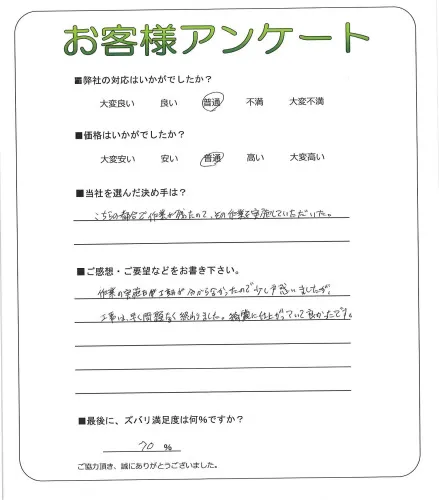 お客様アンケート
■弊社の対応はいかがでしたか？
大変良い 良い 普通 不満 大変不満
■価格はいかがでしたか？
大変安い 安い 普通 高い 大変高い
■当社を選んだ決め手は？
こちらの都合で作業が残たので、その作業を実施していただいた。
■ご感想・ご要望などをお書き下さい。
作業の実施日や工程が分からなかったので少し戸惑いましたが、
工事は、早く問題なく終わりました。綺麗に仕上がっていて良かったです。
■最後に、ズバリ満足度は何%ですか？
70 %
ご協力頂き、誠にありがとうございました。